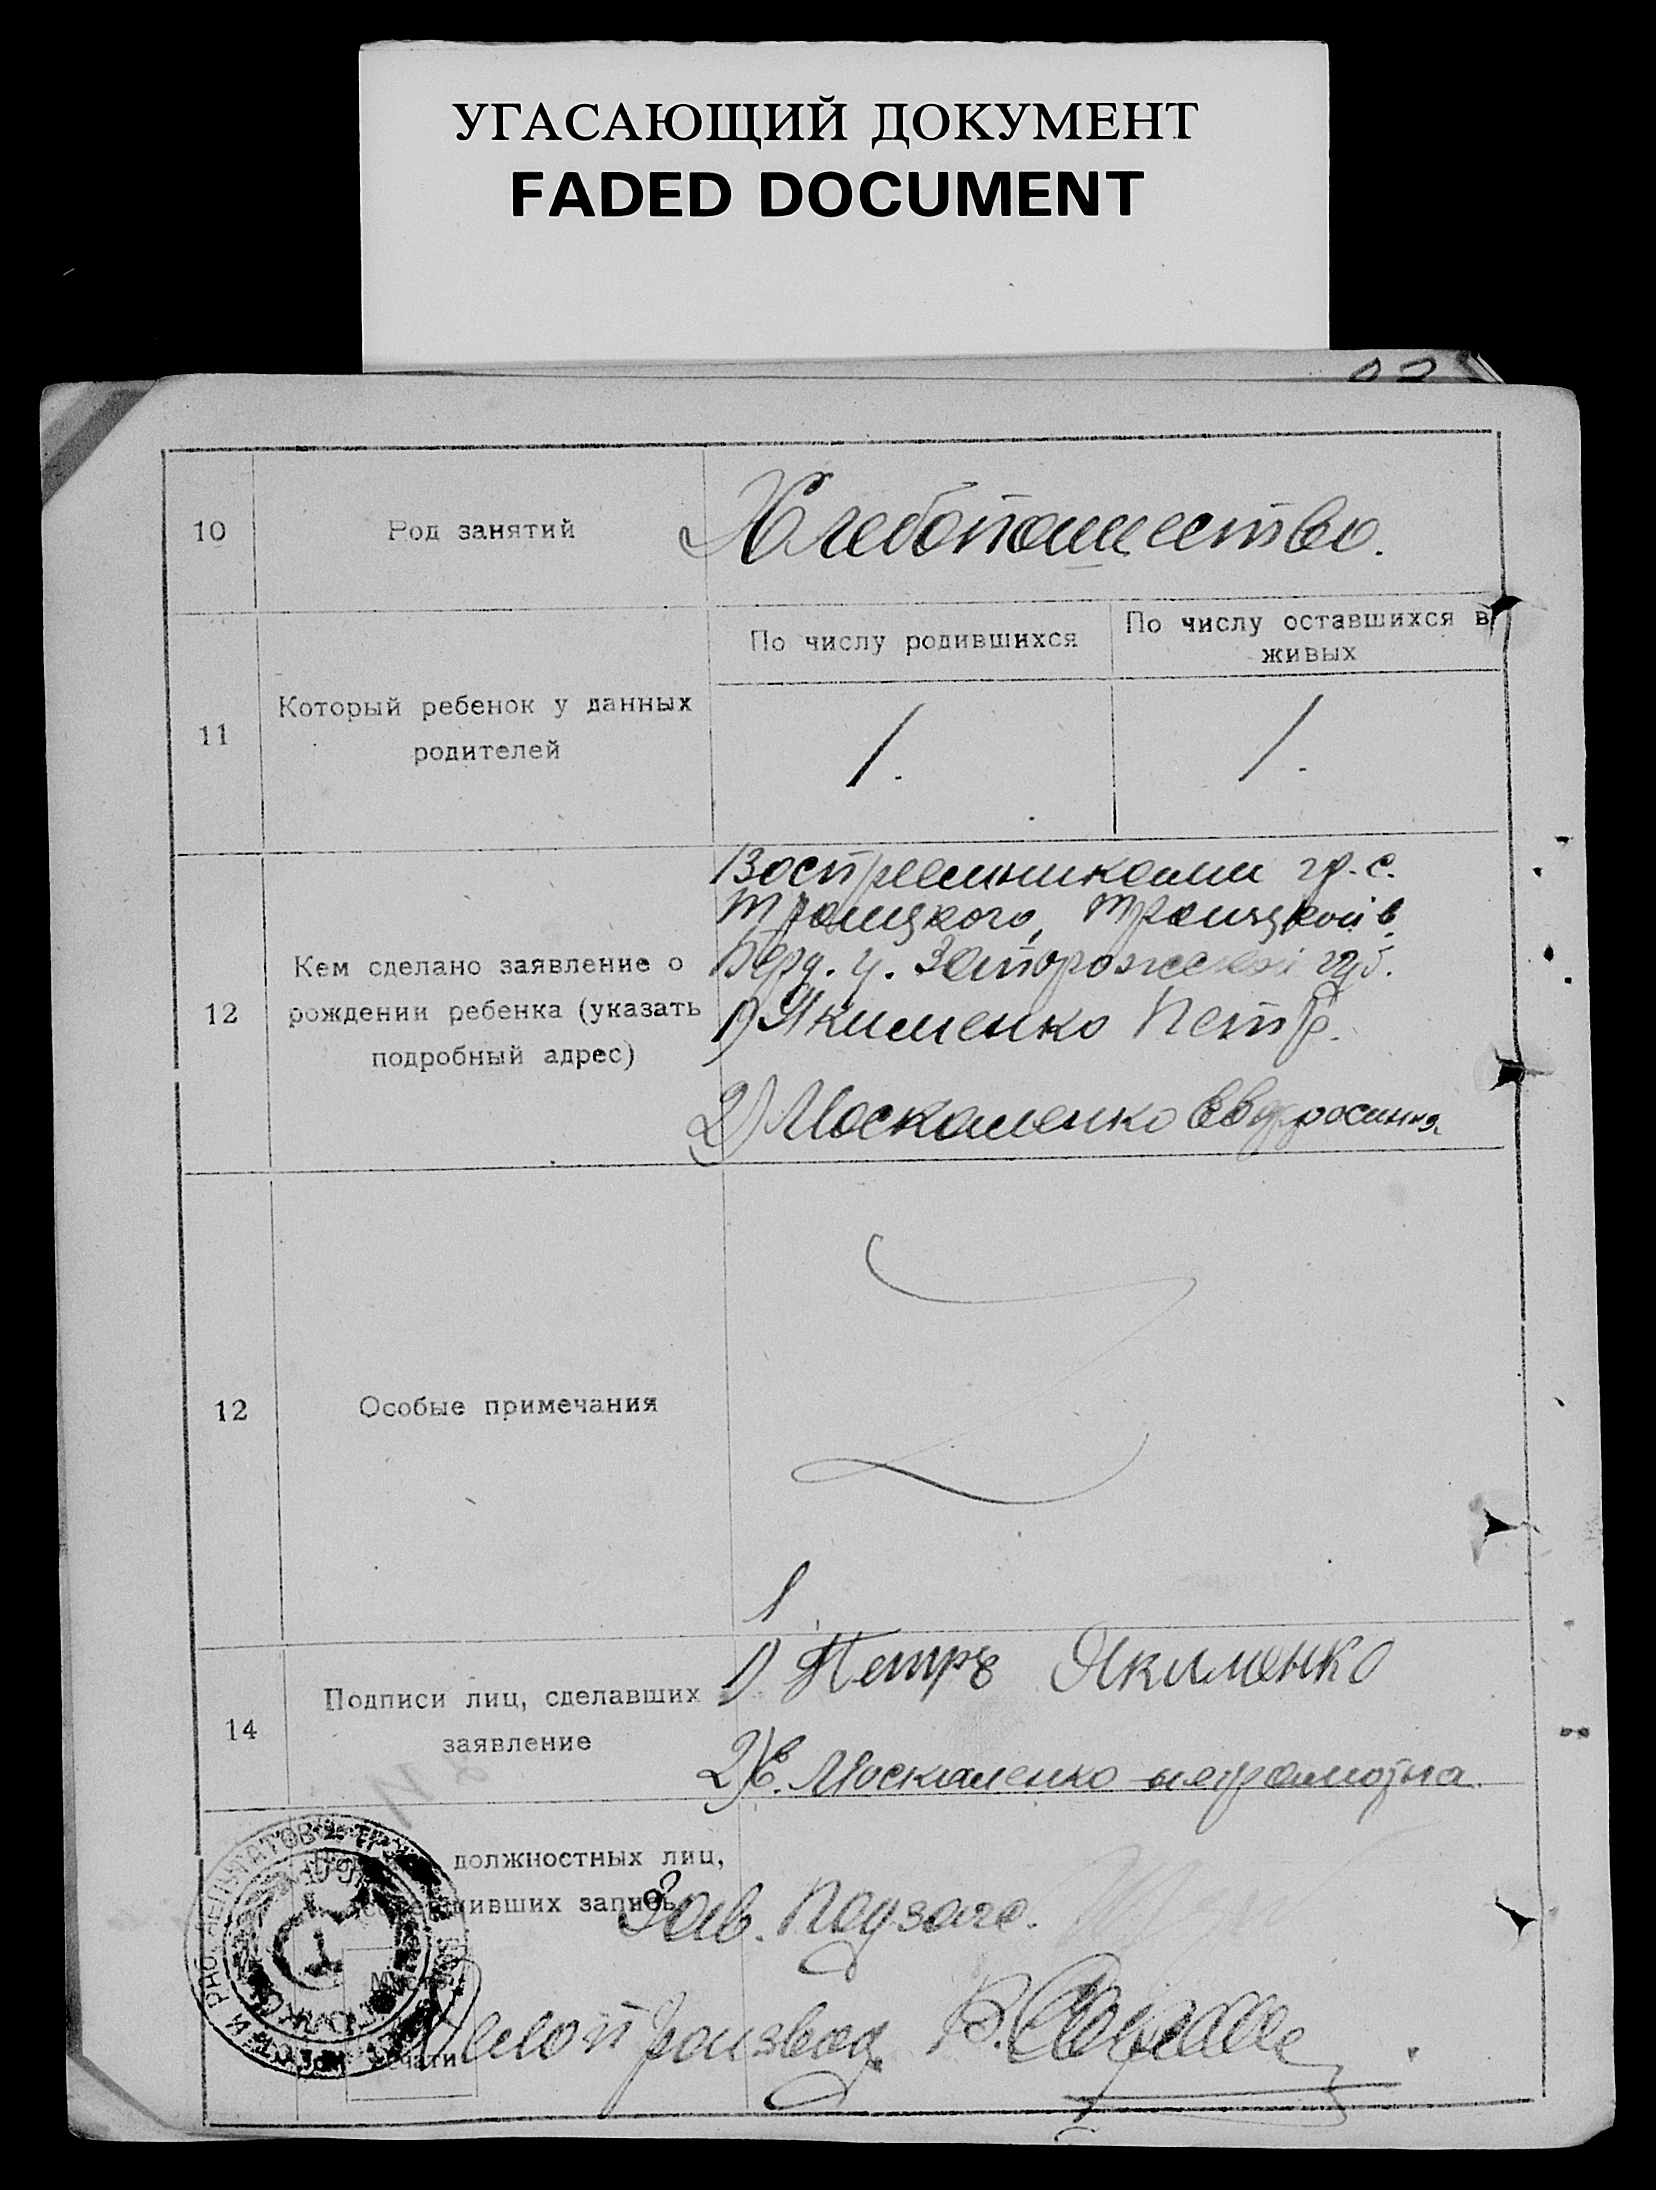 УГАСАЮЩИЙ ДОКУМЕНТ
FADED DOCUMENT
10
Род занятий
Хлебопашество.
11
Который ребенок у данных
родителей
По числу родившихся
По числу оставшихся в
живых
1.
1.
12
Кем сделано заявление о
рождении ребенка (указать
подробный адрес)
Воспреемниками гр. с.
Троицкого, Троицкой в.
Берд. у. Запорожской губ.
1) Якименко Петр.
2) Москаленко Евдросиния
12
Особые примечания
14
Подписи лиц, сделавших
заявление
1) Петръ Якименко
2) Е. Москаленко неграмотна
должностных лиц,
запись
Зав. Подзагс.
Делопроизвод. В.
печати